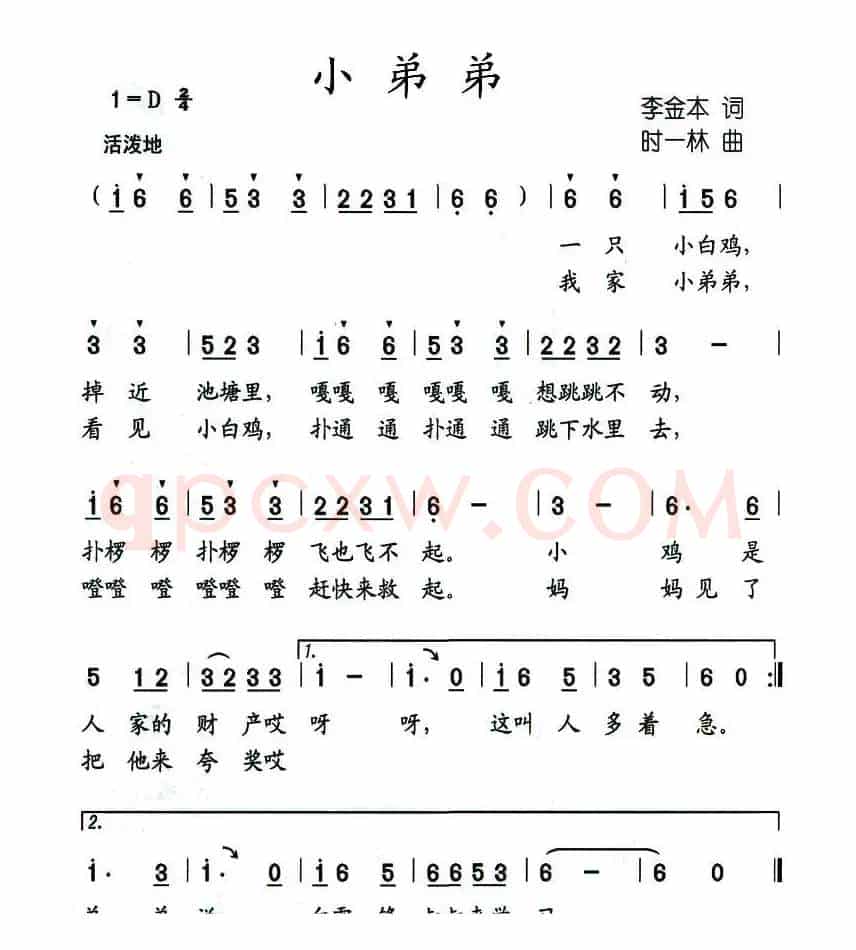 小弟弟
1=D 2/4
李金本 词
活泼地
时一林 曲
( i 6 6 | 5 3 3 | 2 2 3 1 | 6 6 ) | 6 6 | i 5 6 |
一 只 小白鸡,
我 家 小弟弟,
3 3 | 5 2 3 | i 6 6 | 5 3 3 | 2 2 3 2 | 3 - |
掉 近 池塘里, 嘎嘎 嘎 嘎嘎 嘎 想跳跳不 动,
看 见 小白鸡, 扑通 通 扑通 通 跳下水里 去,
qpcxw.COM
i 6 6 | 5 3 3 | 2 2 3 1 | 6 - | 3 - | 6· 6 |
扑椤 椤 扑椤 椤 飞也飞不 起。 小 鸡 是
噔噔 噔 噔噔 噔 赶快来救 起。 妈 妈 见 了
1.
5 1 2 | 3 2 3 3 | i - | i· 0 | i 6 5 | 3 5 | 6 0 :||
人 家的 财 产哎 呀 呀, 这叫 人 多 着 急。
把 他来 夸 奖哎
2.
i· 3 | i· 0 | i 6 5 | 6 6 5 3 | 6 - | 6 0 ||